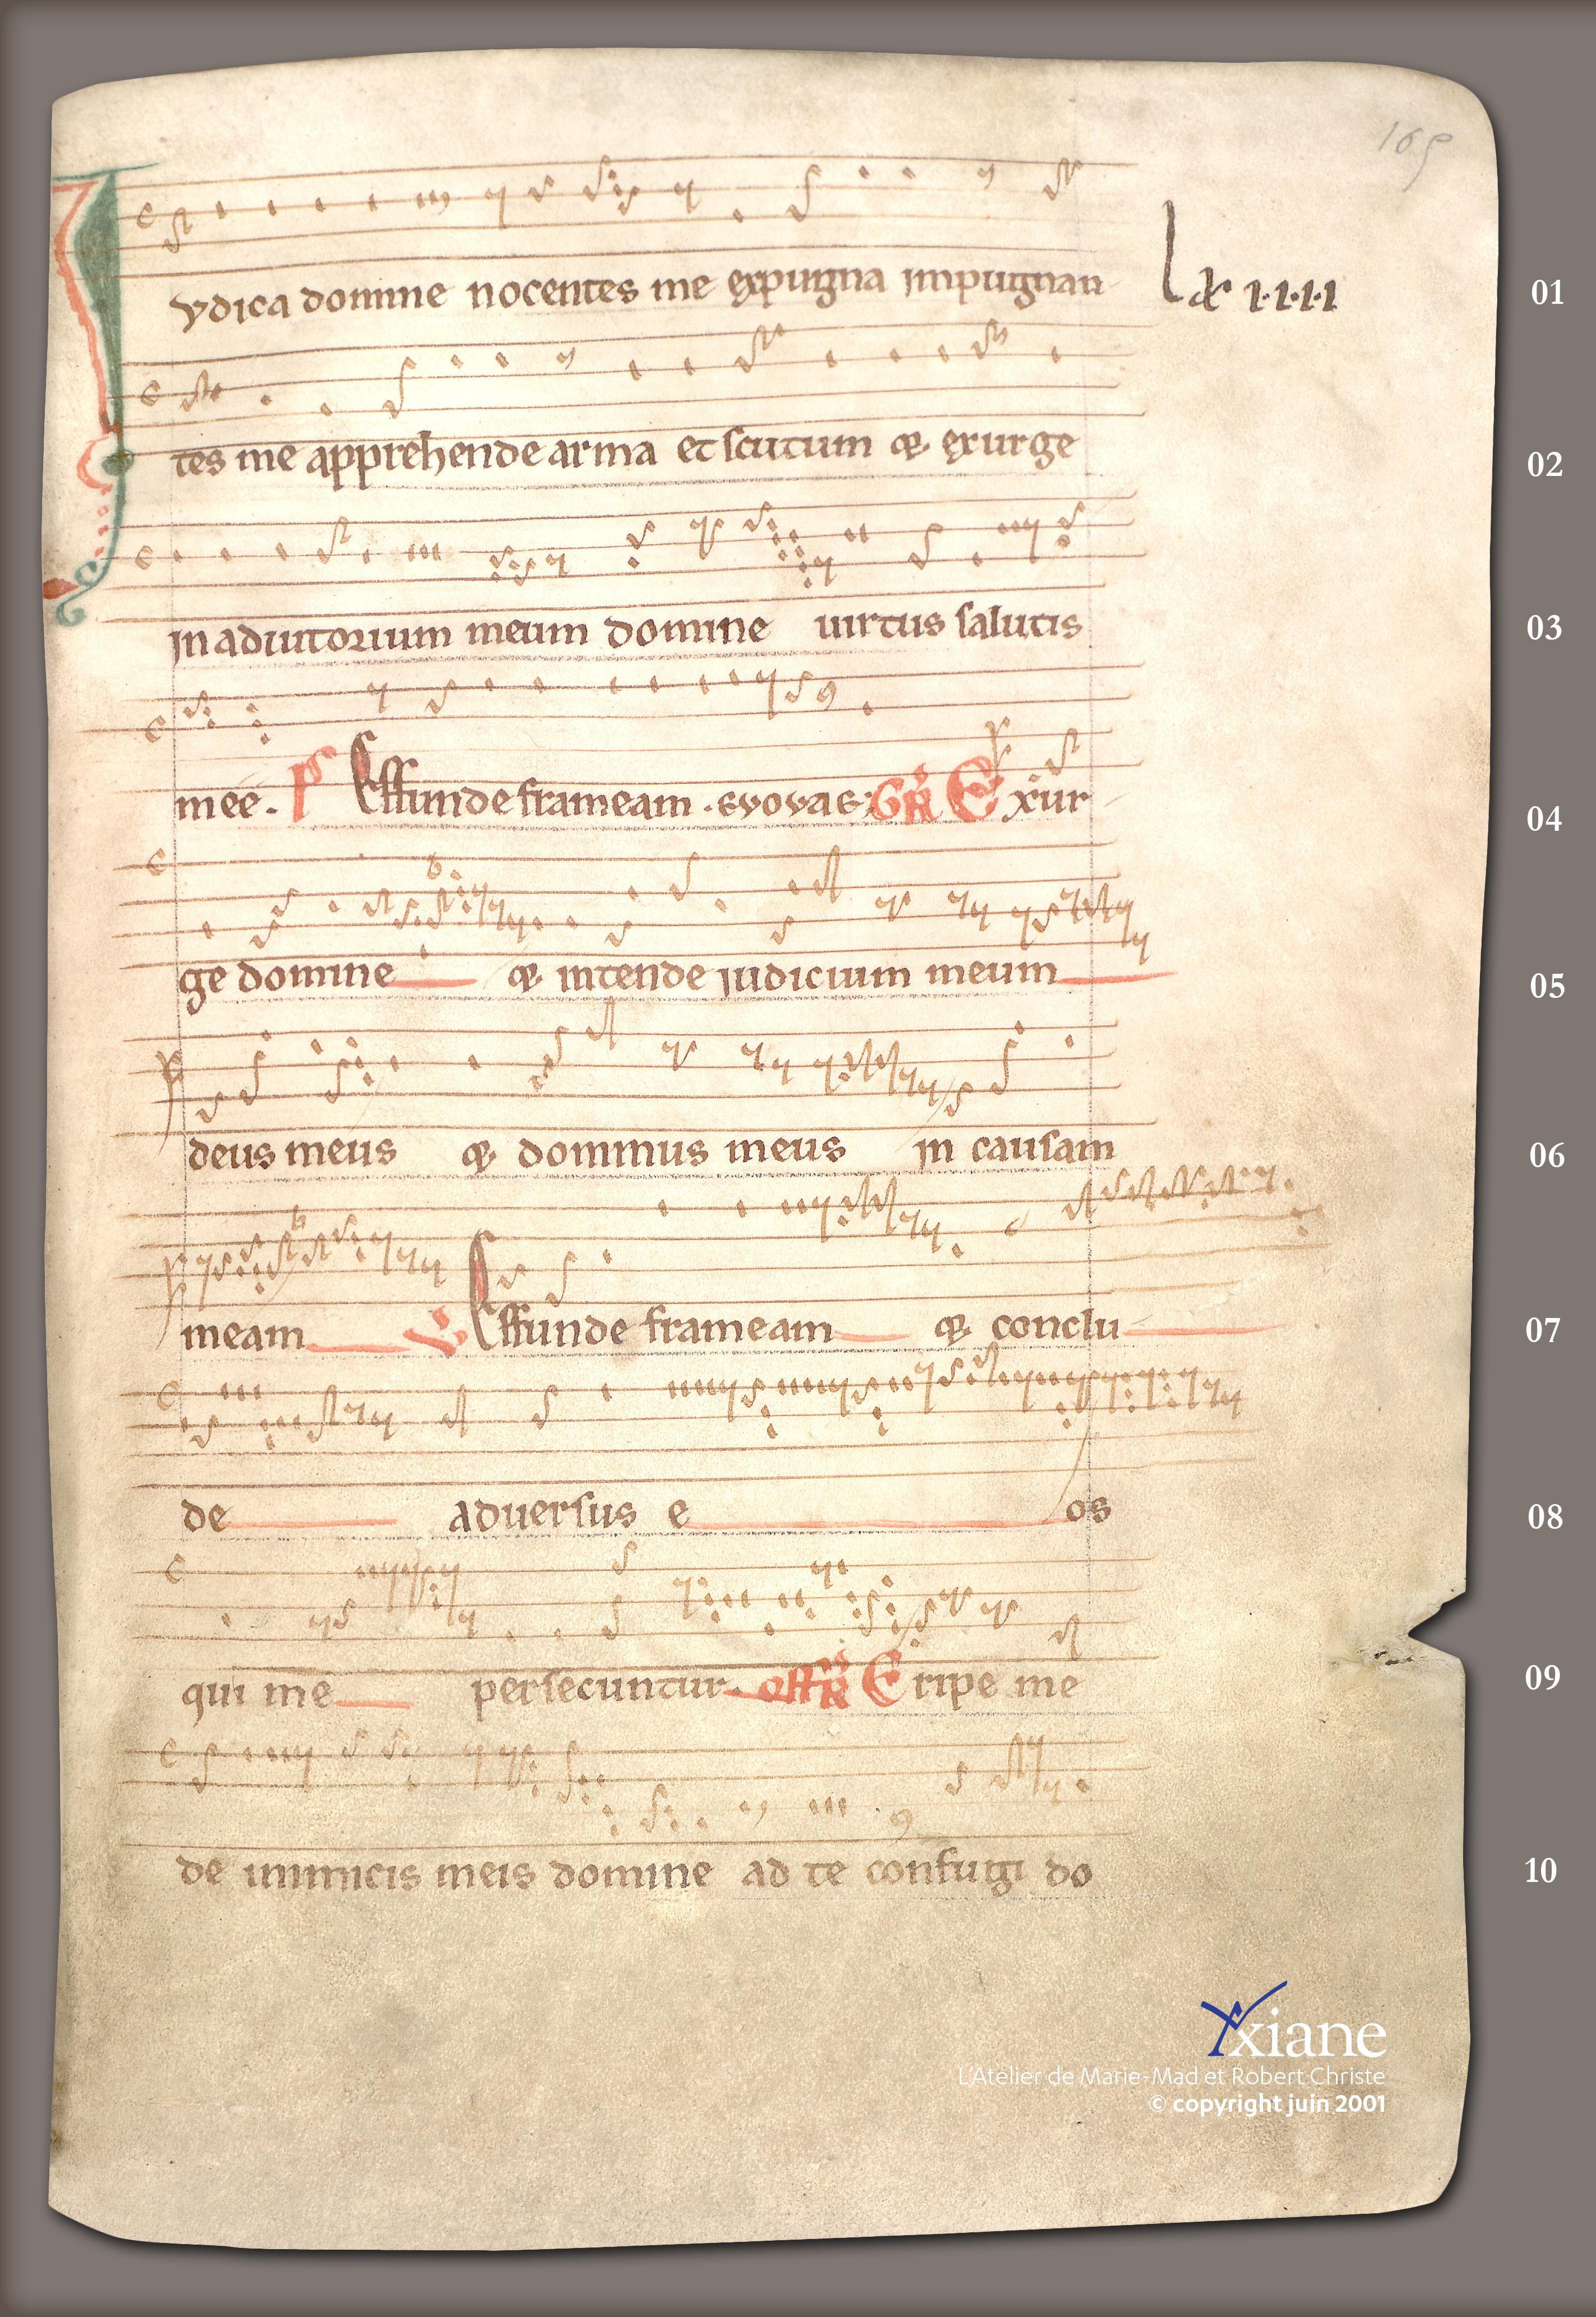 165
Iudica domine nocentes me expugna impugnan
lxx i·i·i·i
01
tes me apprehende arma et scutum & exurge
02
in adiutorium meum domine uirtus salutis
03
mee. ps Effunde frameam. euouae: GR Exur
04
ge domine & intende iudicium meum
05
deus meus & dominus meus in causam
06
meam V Effunde frameam & conclu
07
de aduersus e os
08
qui me persecuntur. offR Eripe me
09
de inimicis meis domine ad te confugi do
10
xiane
L'Atelier de Marie-Mad et Robert Christe
© copyright juin 2001